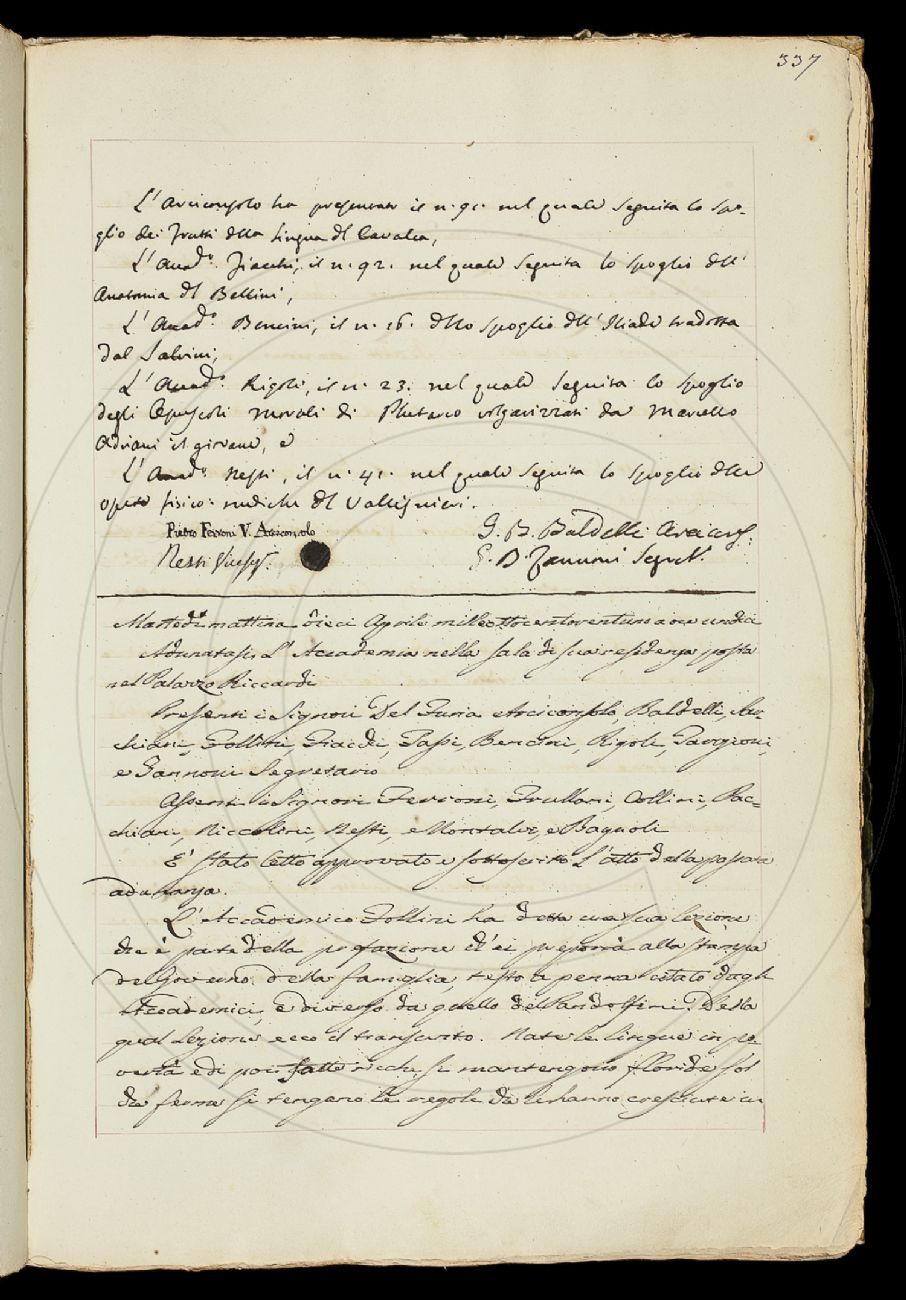 337
L'Arciconsolo ha presentato il n. 91. nel quale seguita lo spo-
glio dei Frutti della Lingua del Cavalca,
L'Accad.º Fiacchi, il n. 92. nel quale seguita lo spoglio dell'
Anatomia del Bellini,
L'Accad.º Bencini, il n. 16. dello spoglio dell'Iliade tradotta
dal Salvini,
L'Accad.º Rigoli, il n. 23. nel quale seguita lo spoglio
degli Opuscoli morali di Plutarco volgarizzati da Marcello
Adriani il giovane, e
L'Accad.º Nesti, il n. 41. nel quale seguita lo spoglio delle
opere fisico-mediche del Vallisnieri.
Pietro Ferroni V. Arciconsolo
G. B. Baldelli Arcicons.
Nesti
G. B. Zannoni Segret.
Martedì mattina dieci Aprile mille ottocentoventuno a ore undici
Adunatasi L'Accademia nella sala di sua residenza posta
nel Palazzo Riccardi
Presenti i Signori Del Furia Arciconsolo, Baldelli, Sar-
chiani, Follini, Fiacchi, Tassi, Bencini, Rigoli, Targioni,
e Zannoni Segretario
Assenti i Signori Ferroni, Frullani, Collini, Pac-
chiani, Niccolini, Nesti, Montalvi, e Bagnoli
E' stato letto approvato e sottoscritto L'atto della passata
adunanza.
L'Accademico Follini ha detta una sua lezione
che è parte della prefazione ch'ei preporrà alla stampa
del Governo della famiglia, testo a penna citato dagli
Accademici, e diverso da quello del Pandolfini. Della
qual Lezione ecco il transunto. Nate le lingue in po-
vertà e di poi fatte ricche, si mantengono floride sol
da ferme si tengano le regole che le hanno cresciute in